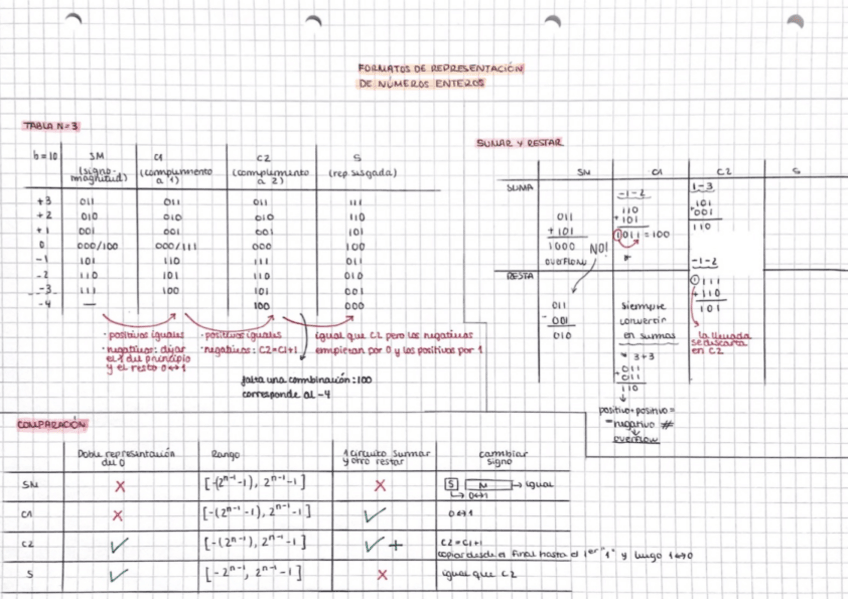 FORMATOS DE REPRESENTACIÓN
DE NÚMEROS ENTEROS
TABLA N=3
b=10 SM C1 C2 S
(signo-magnitud) (complemento a 1) (complemento a 2) (rep. sesgada)
+3 011 011 011 111
+2 010 010 010 110
+1 001 001 001 101
0 000/100 000/111 000 100
-1 101 110 111 011
-2 110 101 110 010
-3 111 100 101 001
-4 — 100 000
· positivos iguales
· negativos: dejar
el 1 del principio
y el resto 0↔1
· positivos iguales
· negativos: C2=C1+1
igual que C2 pero los negativos
empiezan por 0 y los positivos por 1
falta una combinación: 100
corresponde al -4
SUMAR Y RESTAR
SM C1 C2 S
SUMA
011
+ 101
1000 NO!
OVERFLOW
-1-2
110
+ 101
1011 = 100
1-3
101
+001
110
-1-2
111
+ 110
101
la llevada
se descarta
en C2
RESTA
011
- 001
010
siempre
convertir
en sumas
* 3+3
011
+ 011
110
positivo+positivo=
= negativo #
overflow
COMPARACIÓN
Doble representación
del 0
Rango
1 circuito sumar
y otro restar
cambiar
signo
SM X [-(2ⁿ⁻¹-1), 2ⁿ⁻¹-1] X S N → igual
↳ 0↔1
C1 X [-(2ⁿ⁻¹-1), 2ⁿ⁻¹-1] ✓ 0↔1
C2 ✓ [-(2ⁿ⁻¹), 2ⁿ⁻¹-1] ✓+ C2=C1+1
copiar desde el final hasta el 1er "1" y luego 1↔0
S ✓ [-2ⁿ⁻¹, 2ⁿ⁻¹-1] X igual que C2